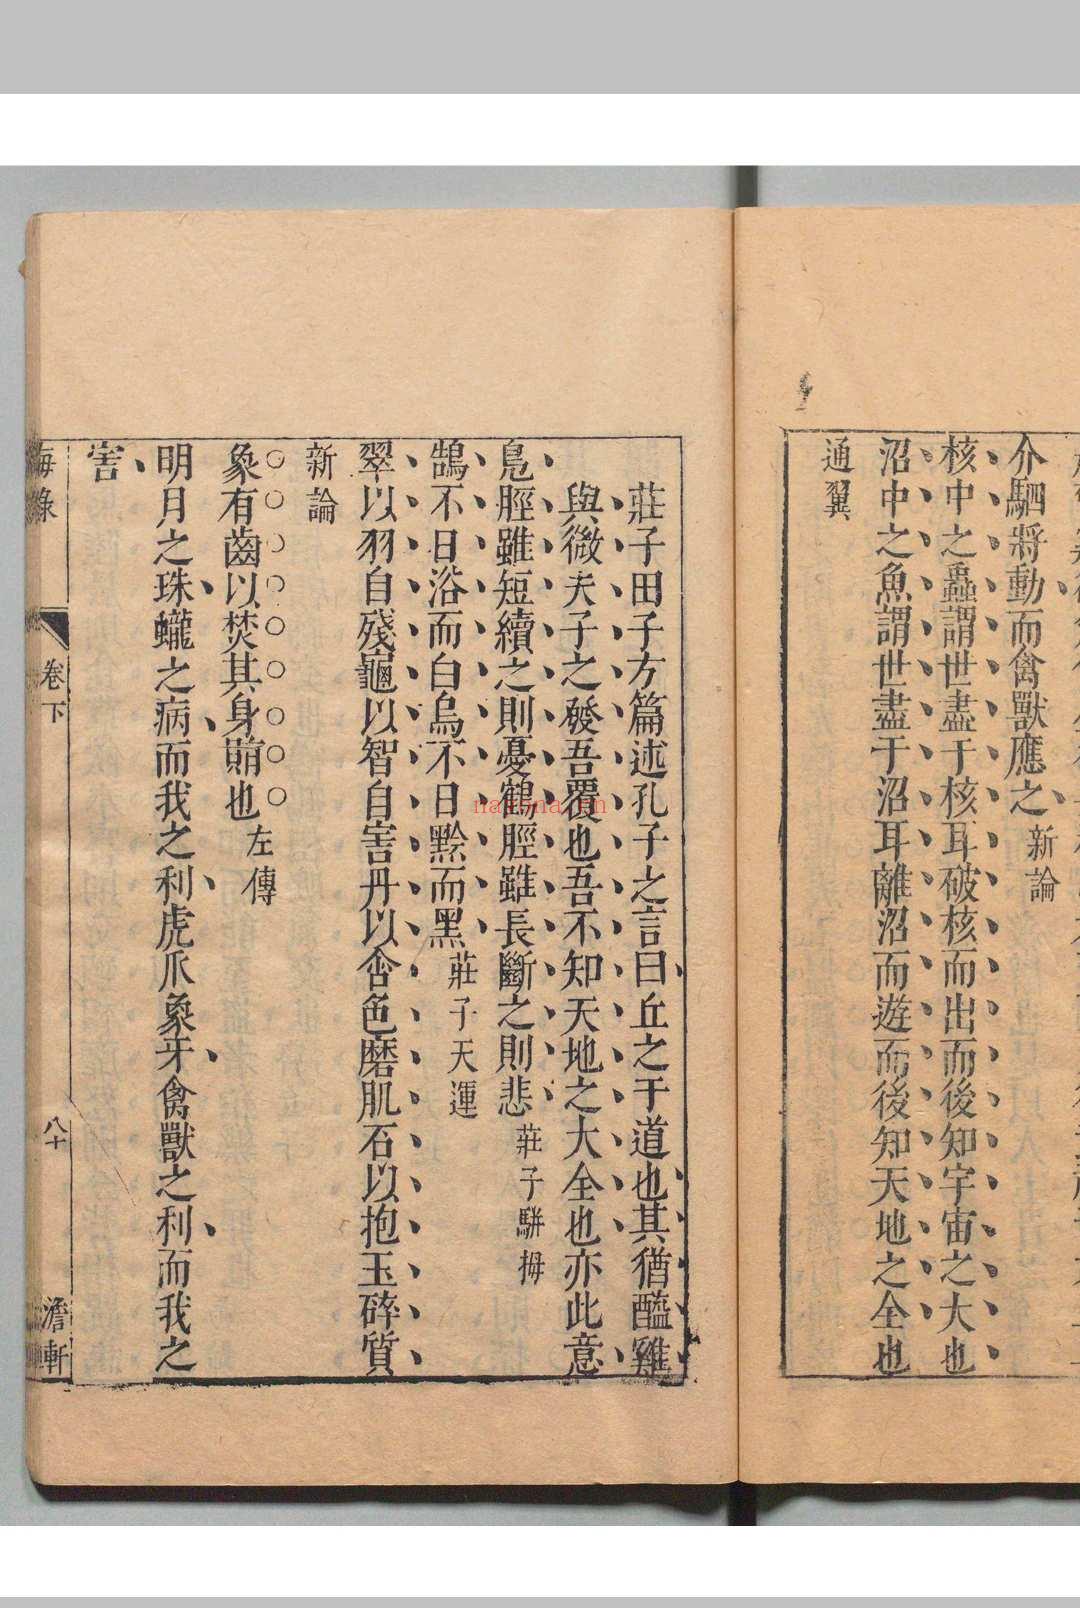 介駟將動而禽獸應之新論
核中之蟲謂世盡于核耳破核而出而後知宇宙之大也
沼中之魚謂世盡于沼耳離沼而遊而後知天地之全也
通翼
莊子田子方篇述孔子之言曰丘之于道也其猶醯雞
與微夫子之發吾覆也吾不知天地之大全也亦此意
鳧脛雖短續之則憂鶴脛雖長斷之則悲莊子駢拇
鵠不日浴而白烏不日黔而黑莊子天運
翠以羽自殘龜以智自害丹以含色磨肌石以抱玉碎質
新論
象有齒以焚其身賄也左傳
明月之珠蠬之病而我之利虎爪象牙禽獸之利而我之
害
卷下
八十
澹軒